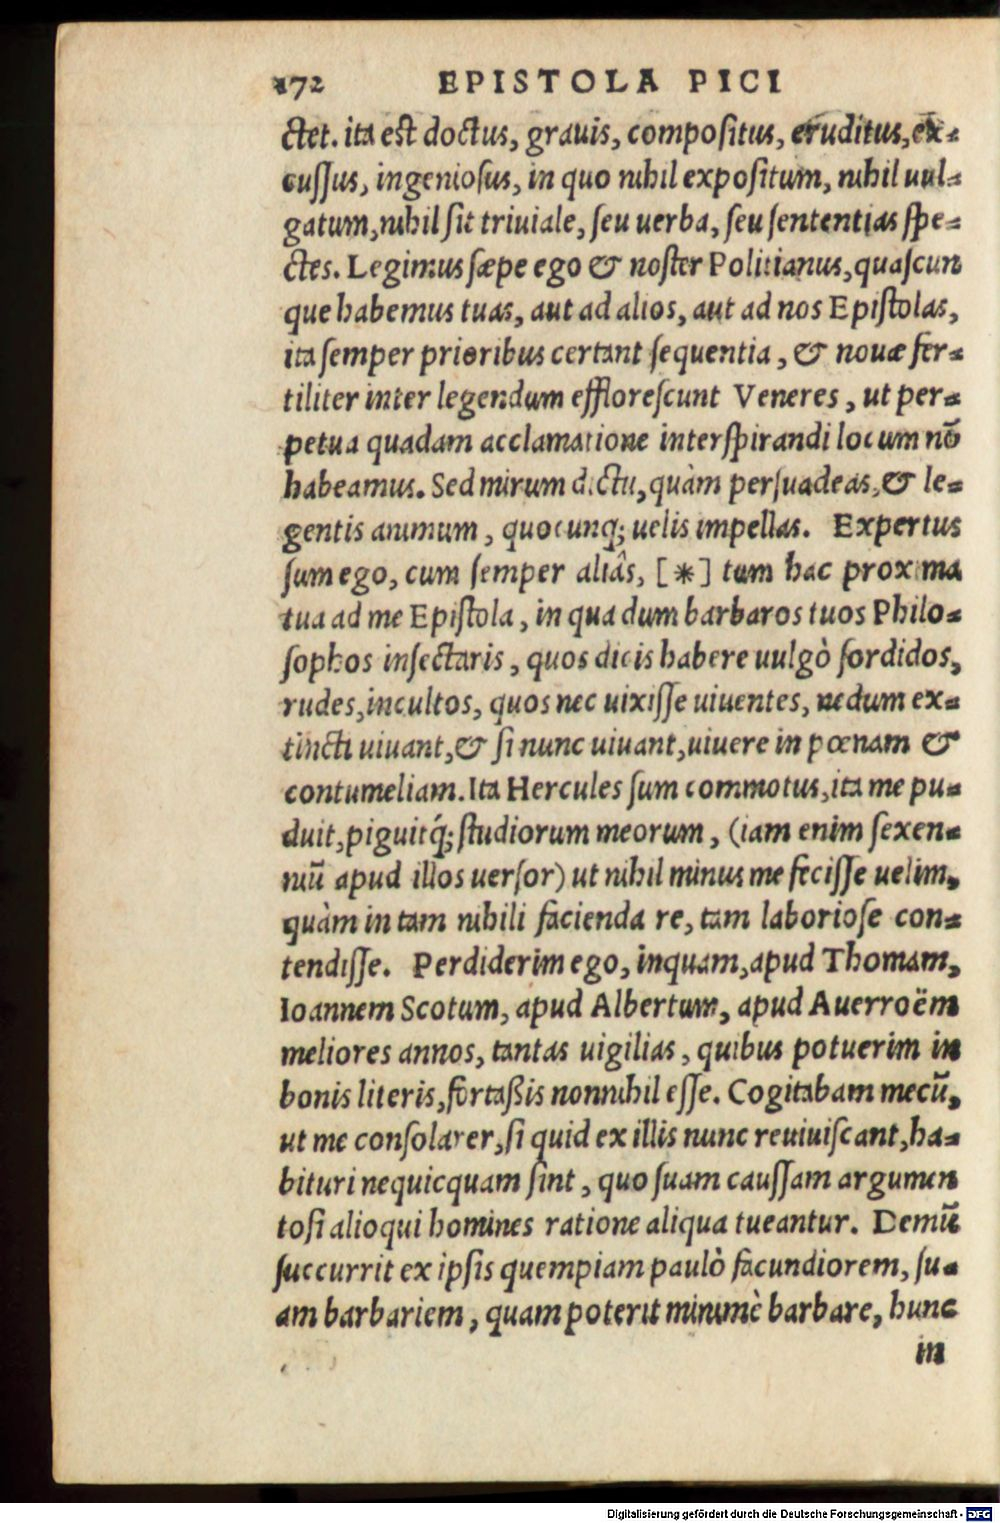 172 EPISTOLA PICI
ctet. ita est doctus, grauis, compositus, eruditus, ex-
cussus, ingeniosus, in quo nihil expositum, nihil uul-
gatum, nihil sit triuiale, seu uerba, seu sententias spe-
ctes. Legimus sæpe ego & noster Politianus, quascun
que habemus tuas, aut ad alios, aut ad nos Epistolas,
ita semper prioribus certant sequentia, & nouæ fer-
tiliter inter legendum efflorescunt Veneres, ut per-
petua quadam acclamatione interspirandi locum nō
habeamus. Sed mirum dictu, quàm persuadeas, & le-
gentis animum, quocunq; uelis impellas. Expertus
sum ego, cum semper aliâs, [*] tum hac proxima
tua ad me Epistola, in qua dum barbaros tuos Philo-
sophos insectaris, quos dicis habere uulgò sordidos,
rudes, incultos, quos nec uixisse uiuentes, nedum ex-
tincti uiuant, & si nunc uiuant, uiuere in pœnam &
contumeliam. Ita Hercules sum commotus, ita me pu-
duit, piguitq́; studiorum meorum, (iam enim sexen-
niū apud illos uersor) ut nihil minus me fecisse uelim,
quàm in tam nihili facienda re, tam laboriose con-
tendisse. Perdiderim ego, inquam, apud Thomam,
Ioannem Scotum, apud Albertum, apud Auerroëm
meliores annos, tantas uigilias, quibus potuerim in
bonis literis, fortaßis nonnihil esse. Cogitabam mecū,
ut me consolarer, si quid ex illis nunc reuiuiscant, ha-
bituri nequicquam sint, quo suam caussam argumen
tosi alioqui homines ratione aliqua tueantur. Demū
succurrit ex ipsis quempiam paulò facundiorem, su-
am barbariem, quam poterit minimè barbare, hunc
in
Digitalisierung gefördert durch die Deutsche Forschungsgemeinschaft - DFG